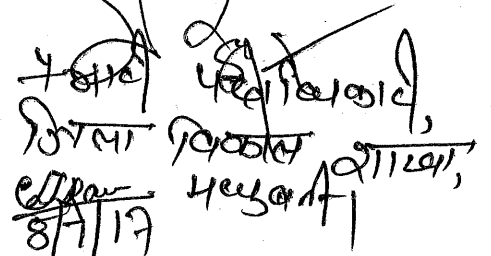 प्रभारी पदाधिकारी,
जिला विकास शाखा,
मधुबनी।
8/7/17